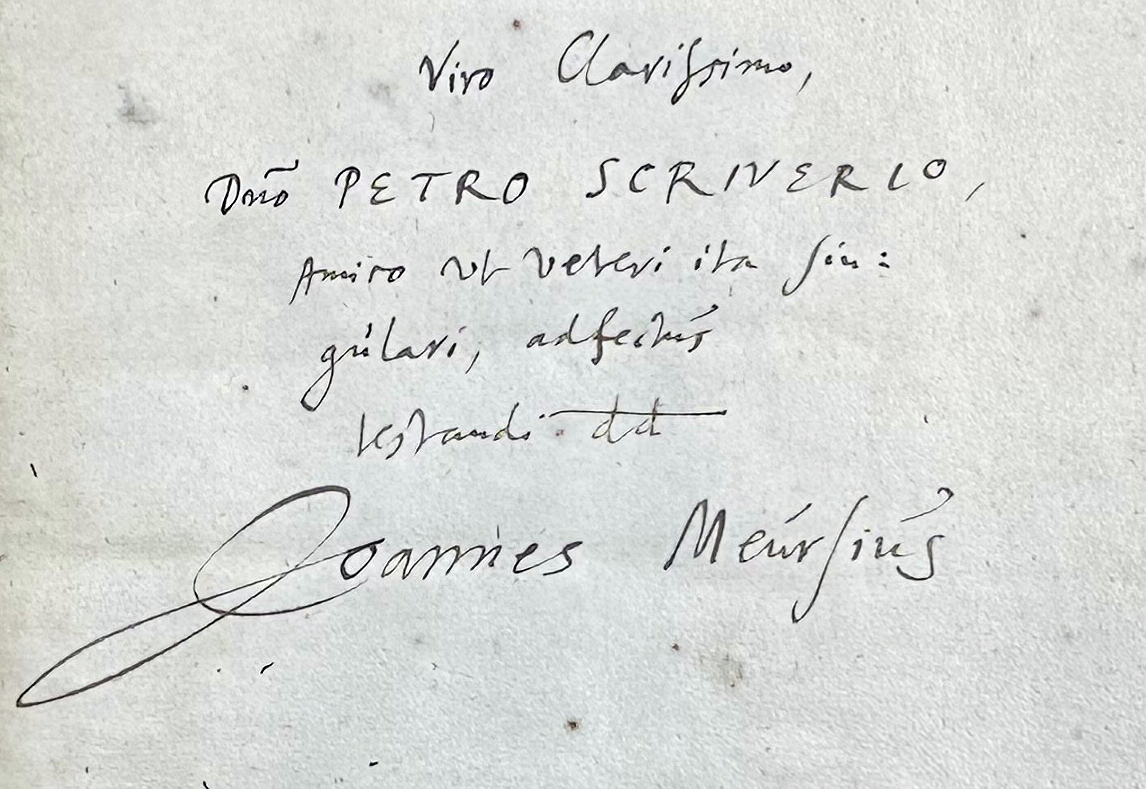 Viro Clarissimo,
Dnō PETRO SCRIVERIO,
Amico ut veteri ita sin:
gúlari, adfectús
testandi. dd
Joannes Meúrsiús